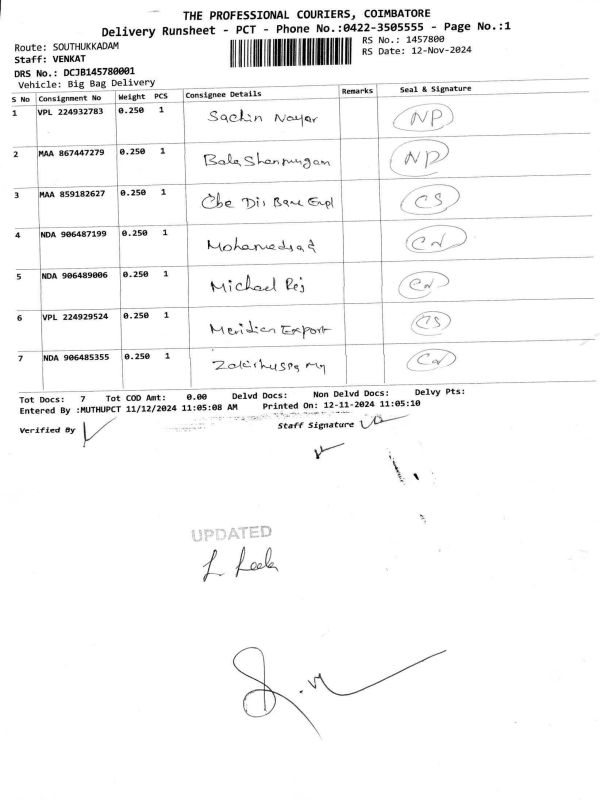 THE PROFESSIONAL COURIERS, COIMBATORE
Delivery Runsheet - PCT - Phone No.:0422-3505555 - Page No.:1
Route: SOUTHUKKADAM RS No.: 1457800
Staff: VENKAT RS Date: 12-Nov-2024
DRS No.: DCJB145780001
Vehicle: Big Bag Delivery
S No Consignment No Weight PCS Consignee Details Remarks Seal & Signature
1 VPL 224932783 0.250 1 Sachin Nayar NP
2 MAA 867447279 0.250 1 Bala Shanmungam NP
3 MAA 859182627 0.250 1 Cbe Dis Bane Empl CS
4 NDA 906487199 0.250 1 Mohamed
5 NDA 906489006 0.250 1 Michael Rej
6 VPL 224929524 0.250 1 Meridian Export CS
7 NDA 906485355 0.250 1
Tot Docs: 7 Tot COD Amt: 0.00 Delvd Docs: Non Delvd Docs: Delvy Pts:
Entered By :MUTHUPCT 11/12/2024 11:05:08 AM Printed On: 12-11-2024 11:05:10
Verified By Staff Signature
UPDATED